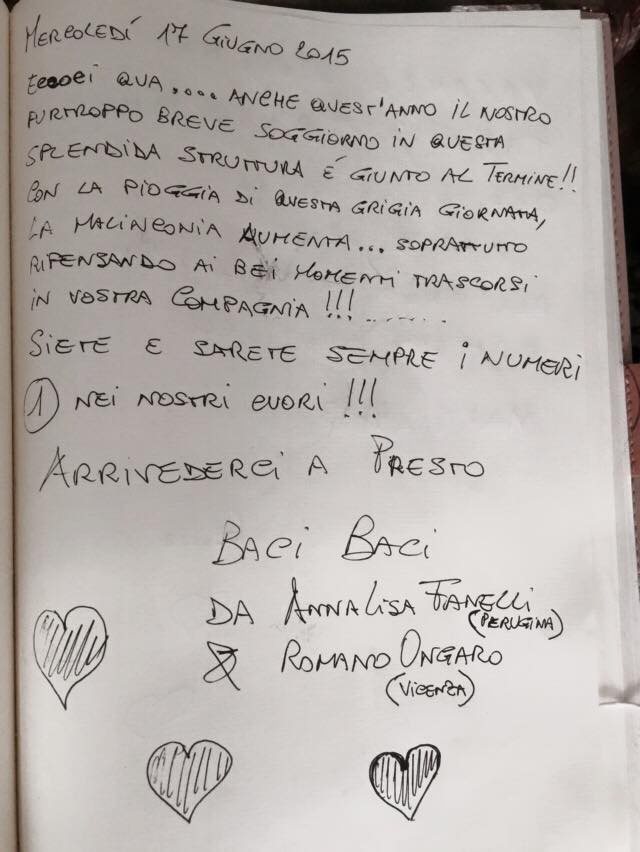 MERCOLEDÍ 17 GIUGNO 2015
Eccoci QUA.... ANCHE QUEST'ANNO IL NOSTRO
PURTROPPO BREVE SOGGIORNO IN QUESTA
SPLENDIDA STRUTTURA É GIUNTO AL TERMINE!!
CON LA PIOGGIA DI QUESTA GRIGIA GIORNATA,
LA MALINCONIA AUMENTA... SOPRATTUTTO
RIPENSANDO AI BEI MOMENTI TRASCORSI
IN VOSTRA COMPAGNIA !!! .......
SIETE E SARETE SEMPRE I NUMERI
1 NEI NOSTRI CUORI !!!
ARRIVEDERCI A PRESTO
BACI BACI
DA ANNALISA FANELLI
(PERUGINA)
& ROMANO ONGARO
(VICENZA)